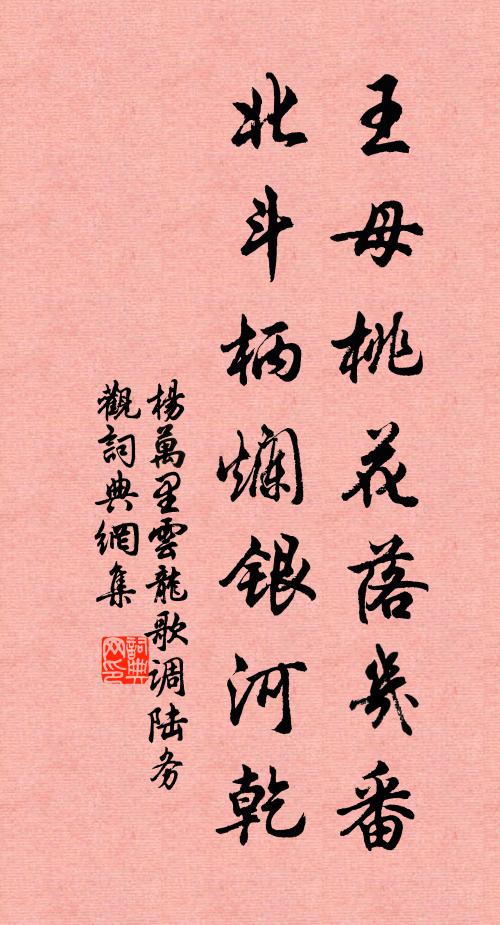 王母桃花落幾番
北斗柄爛銀河乾
楊萬里雲龍歌调陆务
觀詞典網集
詞典网印